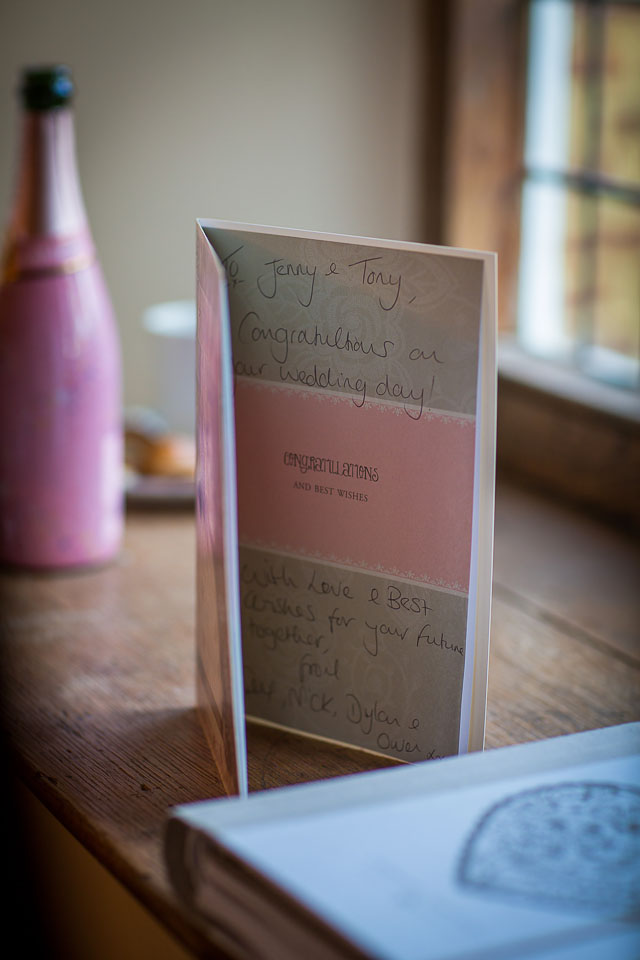 To Jenny & Tony,
Congratultions on
our wedding day!
CONGRATULATIONS
AND BEST WISHES
With Love & Best
Wishes for your future
together,
from
Nick, Dylan &
Owen